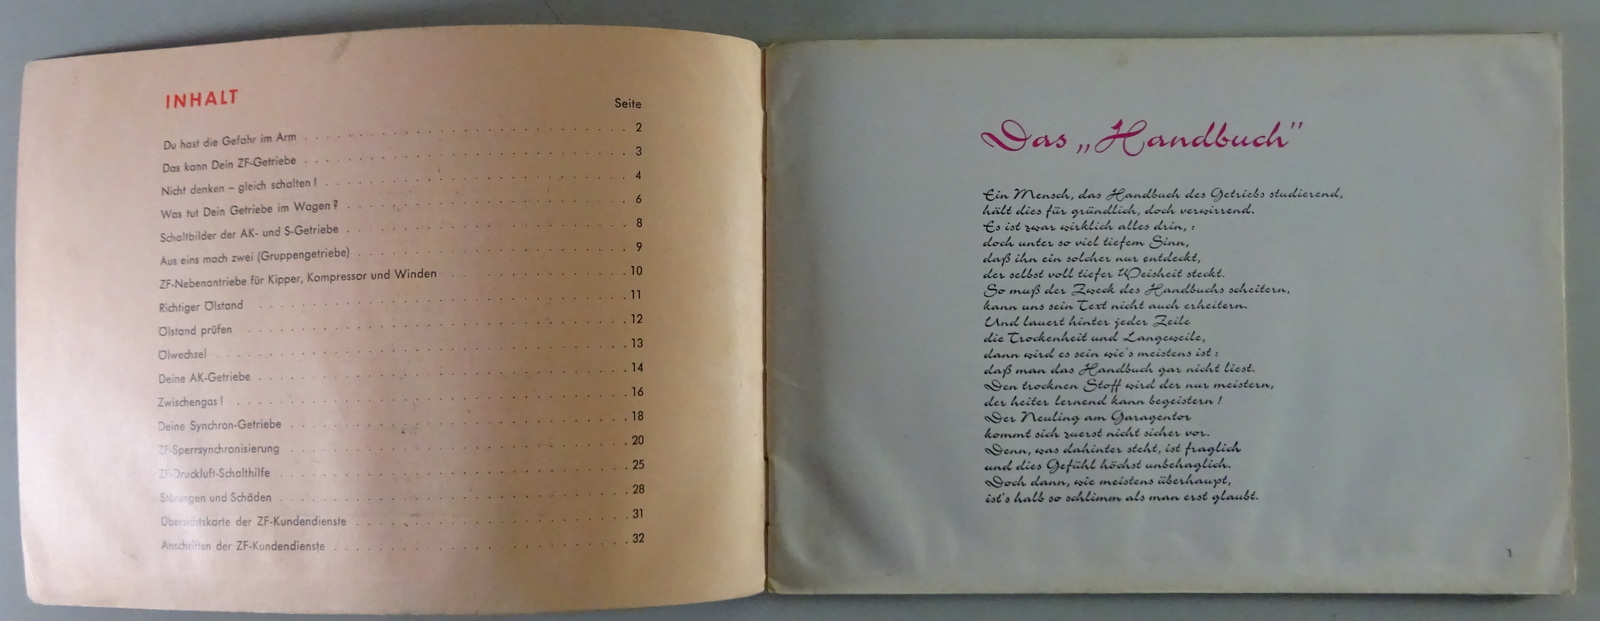 INHALT
Seite
Du hast die Gefahr im Arm 2
Das kann Dein ZF-Getriebe 3
Nicht denken – gleich schalten! 4
Was tut Dein Getriebe im Wagen? 6
Schaltbilder der AK- und S-Getriebe 8
Aus eins mach zwei (Gruppengetriebe) 9
ZF-Nebenantriebe für Kipper, Kompressor und Winden 10
Richtiger Ölstand 11
Ölstand prüfen 12
Ölwechsel 13
Deine AK-Getriebe 14
Zwischengas! 16
Deine Synchron-Getriebe 18
ZF-Sperrsynchronisierung 20
ZF-Druckluft-Schalthilfe 25
Störungen und Schäden 28
Übersichtskarte der ZF-Kundendienste 31
Anschriften der ZF-Kundendienste 32
Das „Handbuch"
Ein Mensch, das Handbuch des Getriebs studierend,
hält dies für gründlich, doch verwirrend.
Es ist zwar wirklich alles drin, :
doch unter so viel tiefem Sinn,
daß ihn ein solcher nur entdeckt,
der selbst voll tiefer Weisheit steckt.
So muß der Zweck des Handbuchs scheitern,
kann uns sein Text nicht auch erheitern.
Und lauert hinter jeder Zeile
die Trockenheit und Langeweile,
dann wird es sein wie's meistens ist:
daß man das Handbuch gar nicht liest.
Den trocknen Stoff wird der nur meistern,
der heiter lernend kann begeistern!
Der Neuling am Garagentor
kommt sich zuerst nicht sicher vor.
Denn, was dahinter steht, ist fraglich
und dies Gefühl höchst unbehaglich.
Doch dann, wie meistens überhaupt,
ist's halb so schlimm als man erst glaubt.
1